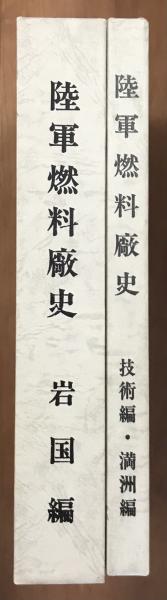 陸軍燃料廠史 技術編・満洲編
陸軍燃料廠史 岩国編